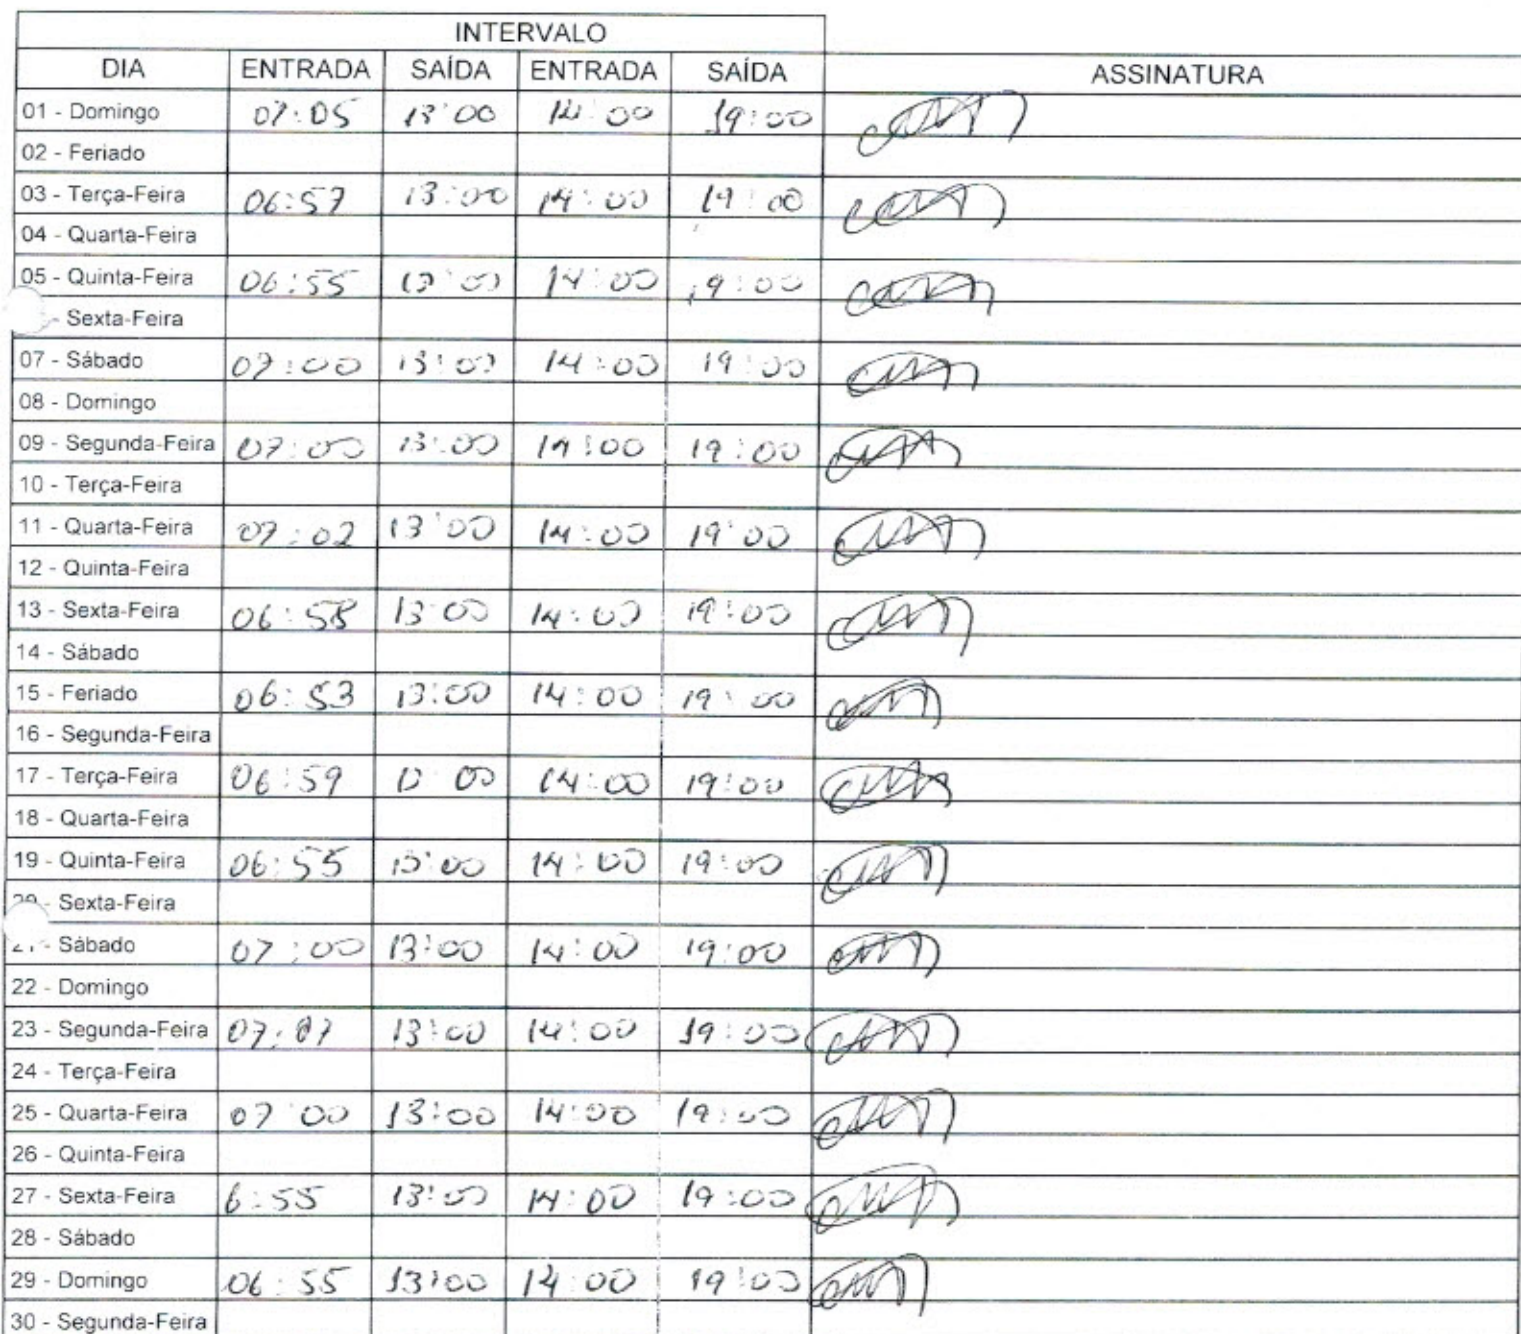 INTERVALO
DIA ENTRADA SAÍDA ENTRADA SAÍDA ASSINATURA
01 - Domingo 07:05 13:00 14:00 19:00
02 - Feriado
03 - Terça-Feira 06:57 13:00 14:00 19:00
04 - Quarta-Feira
05 - Quinta-Feira 06:55 13:00 14:00 19:00
- Sexta-Feira
07 - Sábado 07:00 13:00 14:00 19:00
08 - Domingo
09 - Segunda-Feira 07:00 13:00 14:00 19:00
10 - Terça-Feira
11 - Quarta-Feira 07:02 13:00 14:00 19:00
12 - Quinta-Feira
13 - Sexta-Feira 06:58 13:00 14:00 19:00
14 - Sábado
15 - Feriado 06:53 13:00 14:00 19:00
16 - Segunda-Feira
17 - Terça-Feira 06:59 13:00 14:00 19:00
18 - Quarta-Feira
19 - Quinta-Feira 06:55 13:00 14:00 19:00
20 - Sexta-Feira
21 - Sábado 07:00 13:00 14:00 19:00
22 - Domingo
23 - Segunda-Feira 07:07 13:00 14:00 19:00
24 - Terça-Feira
25 - Quarta-Feira 07:00 13:00 14:00 19:00
26 - Quinta-Feira
27 - Sexta-Feira 6:55 13:00 14:00 19:00
28 - Sábado
29 - Domingo 06:55 13:00 14:00 19:00
30 - Segunda-Feira